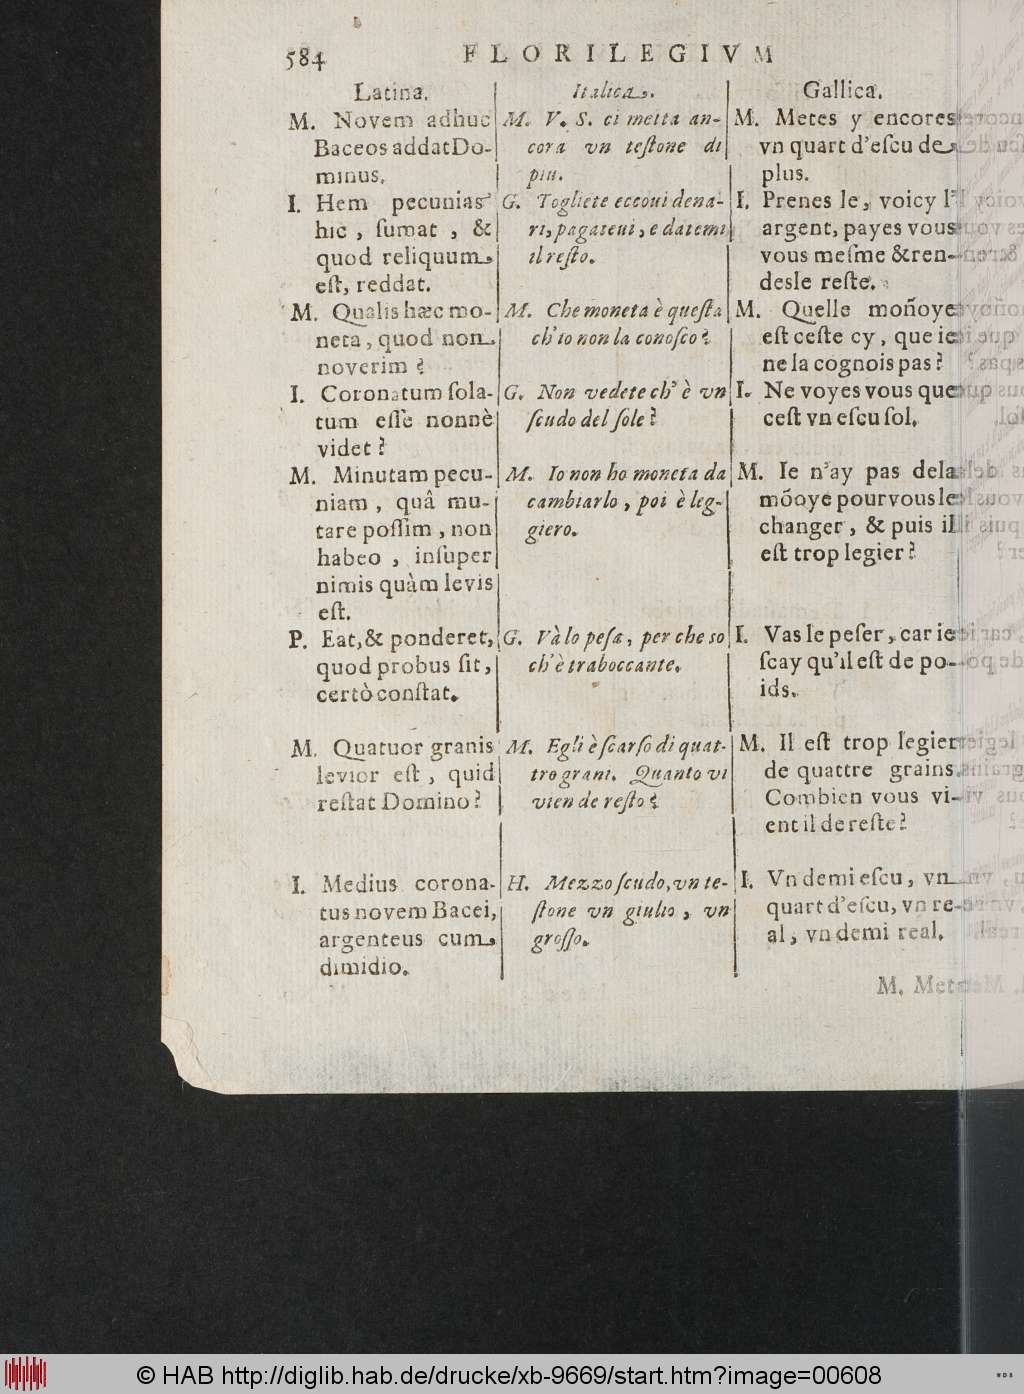 584 FLORILEGIVM
Latina.
M. Novem adhuc
Baceos addat Do-
minus.
I. Hem pecunias
hic, ſumat, &
quod reliquum
eſt, reddat.
M. Qualis hæc mo-
neta, quod non
noverim?
I. Coronatum ſola-
tum eſſe nonnè
videt?
M. Minutam pecu-
niam, quâ mu-
tare poſſim, non
habeo, inſuper
nimis quàm levis
eſt.
P. Eat, & ponderet,
quod probus ſit,
certò conſtat.
M. Quatuor granis
levior eſt, quid
reſtat Domino?
I. Medius corona-
tus novem Bacei,
argenteus cum
dimidio.
Italica.
M. V. S. ci metta an-
cora vn teſtone di
piu.
G. Togliete eccoui dena-
ri, pagateui, e datemi
il reſto.
M. Che moneta è queſta
ch'io non la conoſco?
G. Non vedete ch'è vn
ſcudo del ſole?
M. Io non ho moneta da
cambiarlo, poi è leg-
giero.
G. Và lo peſa, per che so
ch'è traboccante.
M. Egli è ſcarſo di quat-
tro grani. Quanto vi
vien de reſto?
H. Mezzo ſcudo, vn te-
ſtone vn giulio, vn
groſſo.
Gallica.
M. Metes y encores
vn quart d'eſcu de
plus.
I. Prenes le, voicy l'
argent, payes vous
vous meſme & ren-
desle reſte.
M. Quelle mon̄oye
eſt ceſte cy, que ie
ne la cognois pas?
I. Ne voyes vous que
ceſt vn eſcu ſol.
M. Ie n'ay pas dela
mōoye pour vous le
changer, & puis il
eſt trop legier?
I. Vas le peſer, car ie
ſcay qu'il eſt de po-
ids.
M. Il eſt trop legier
de quattre grains.
Combien vous vi-
ent il de reſte?
I. Vn demi eſcu, vn
quart d'eſcu, vn re-
al, vn demi real.
M. Metes
© HAB http://diglib.hab.de/drucke/xb-9669/start.htm?image=00608